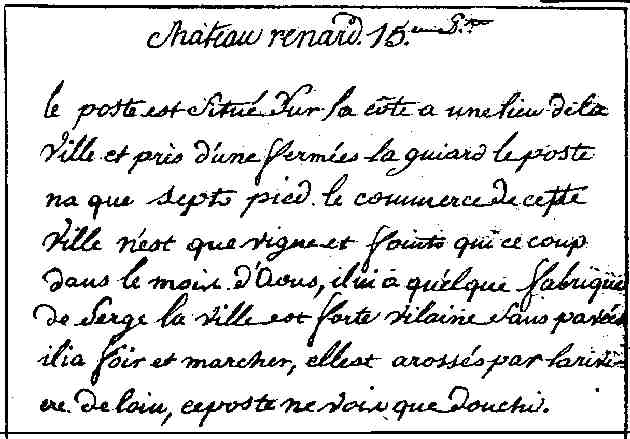 Chateau renard. 15.eme P.te
le poste est situé Sur la côte a une lieu de la
Ville et près d'une fermées la guiard le poste
na que septs pied. le commerce de cette
Ville n'est que vigne et foints qui ce coup
dans le moix d'Aous, il ni a quélque fabrique
de Serge la ville est forte vilaine Sans pavée
il i a foir et marcher, ell est arossés par la rivi-
ere de loin, ce poste ne voix que douchi.